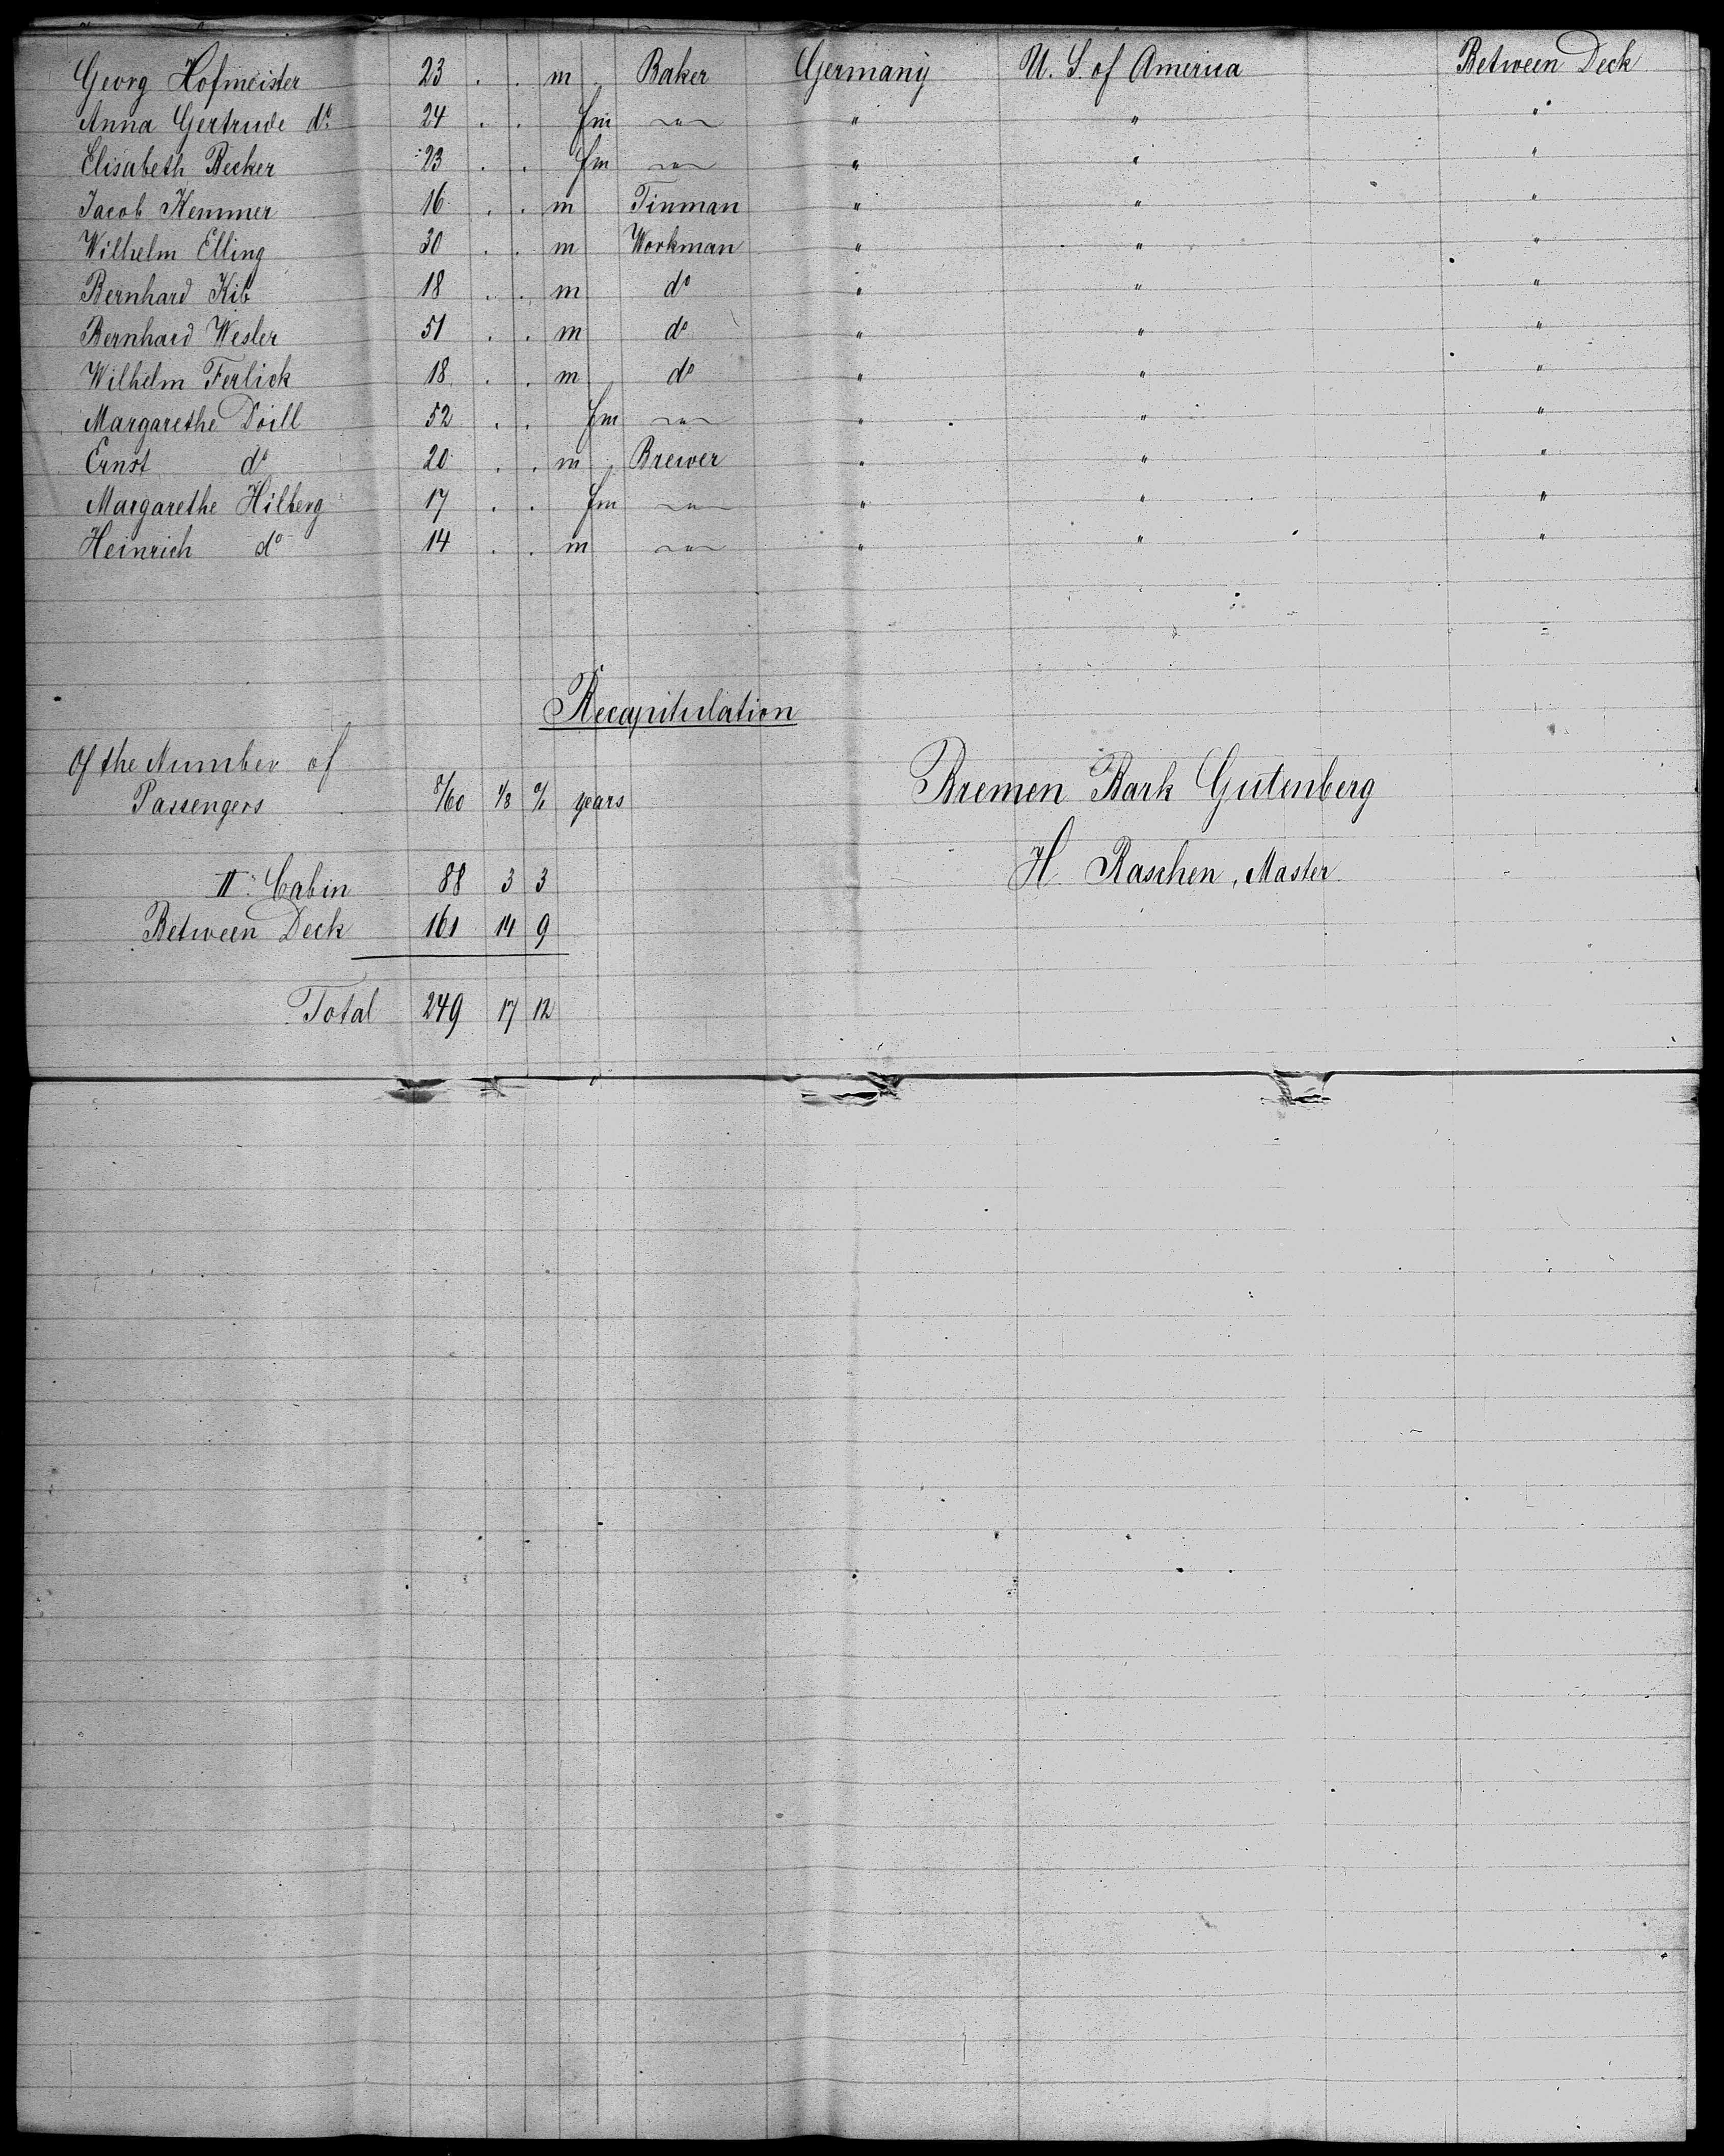 Georg Hofmeister 23 . . m Baker Germany U. S. of America Between Deck
Anna Gertrude do 24 . . fm — " — " " "
Elisabeth Becker 23 . . fm — " — " " "
Jacob Kemmer 16 . . m Tinman " " "
Wilhelm Elling 30 . . m Workman " " "
Bernhard Kib 18 . . m do " " "
Bernhard Wesler 51 . . m do " " "
Wilhelm Ferlick 18 . . m do " " "
Margarethe Doill 52 . . fm — " — " " "
Ernst do 20 . . m Brewer " " "
Margarethe Hilberg 17 . . fm — " — " " "
Heinrich do 14 . . m — " — " " "
Recapitulation
Of the Number of
Passengers 8/60 1/8 0/1 years
Bremen Bark Gutenberg
H. Raschen, Master
II. Cabin 88 3 3
Between Deck 161 14 9
Total 249 17 12